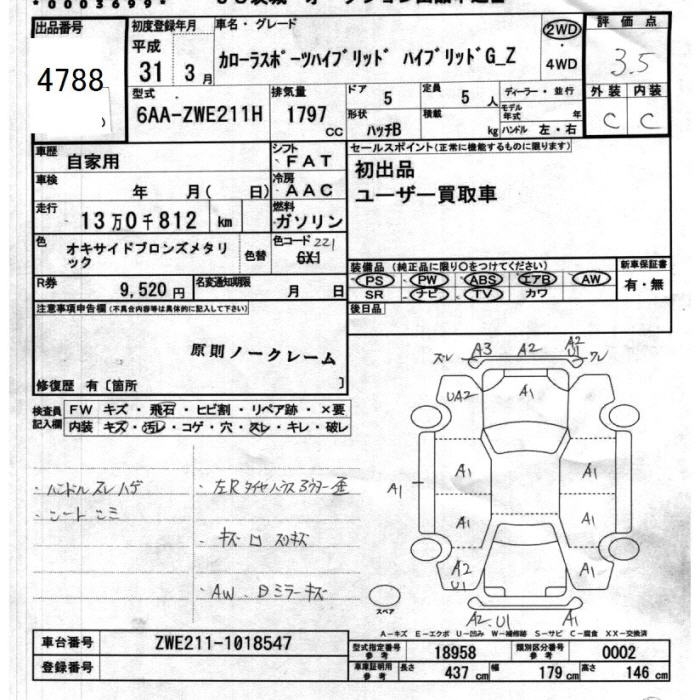 *0003699*
出品番号
4788
初度登録年月
平成
31年 3月
車名・グレード
カローラスポーツハイブリッド ハイブリッドG_Z
2WD
・
4WD
評価点
3.5
外装 内装
C C
型式
6AA-ZWE211H
排気量
1797
CC
ドア
5
定員
5人
形状
ハッチB
積載
kg
ディーラー・並行
モデル年式 年
ハンドル 左・右
車歴
自家用
シフト
FAT
車検
年 月( 日)
冷房
AAC
走行
13万0千812 km
燃料
ガソリン
色
オキサイドブロンズメタリ
ック
色替
色コード 221
6X1
R券
9,520円
名変通知期限
月 日
セールスポイント(正常に機能するものに限ります)
初出品
ユーザー買取車
装備品 (純正品に限り○をつけてください)
PS PW ABS エアB AW
SR ナビ TV カワ
新車保証書
有・無
後日品
注意事項申告欄(不具合内容等は具体的に記入して下さい)
原則ノークレーム
修復歴 有〔箇所 〕
検査員
記入欄
FW キズ・飛石・ヒビ割・リペア跡・×要
内装 キズ・汚レ・コゲ・穴・スレ・キレ・破レ
・ハンドルスレハゲ
・シートシミ
・左Rタイヤハウス
・AW、ミラーキズ
ズレ A3 A2 A2
U1
ワレ
UA2
A1
A1 A1 A1
A1 A1
A2
U1
A1
スペア
A2.U1 A1
A-キズ E-エクボ U-凹み W-補修跡 S-サビ C-腐食 XX-交換済
車台番号
ZWE211-1018547
登録番号
型式指定番号
参考
18958
類別区分番号
参考
0002
車庫証明用
参考
長さ 437cm 幅 179cm 高さ 146cm